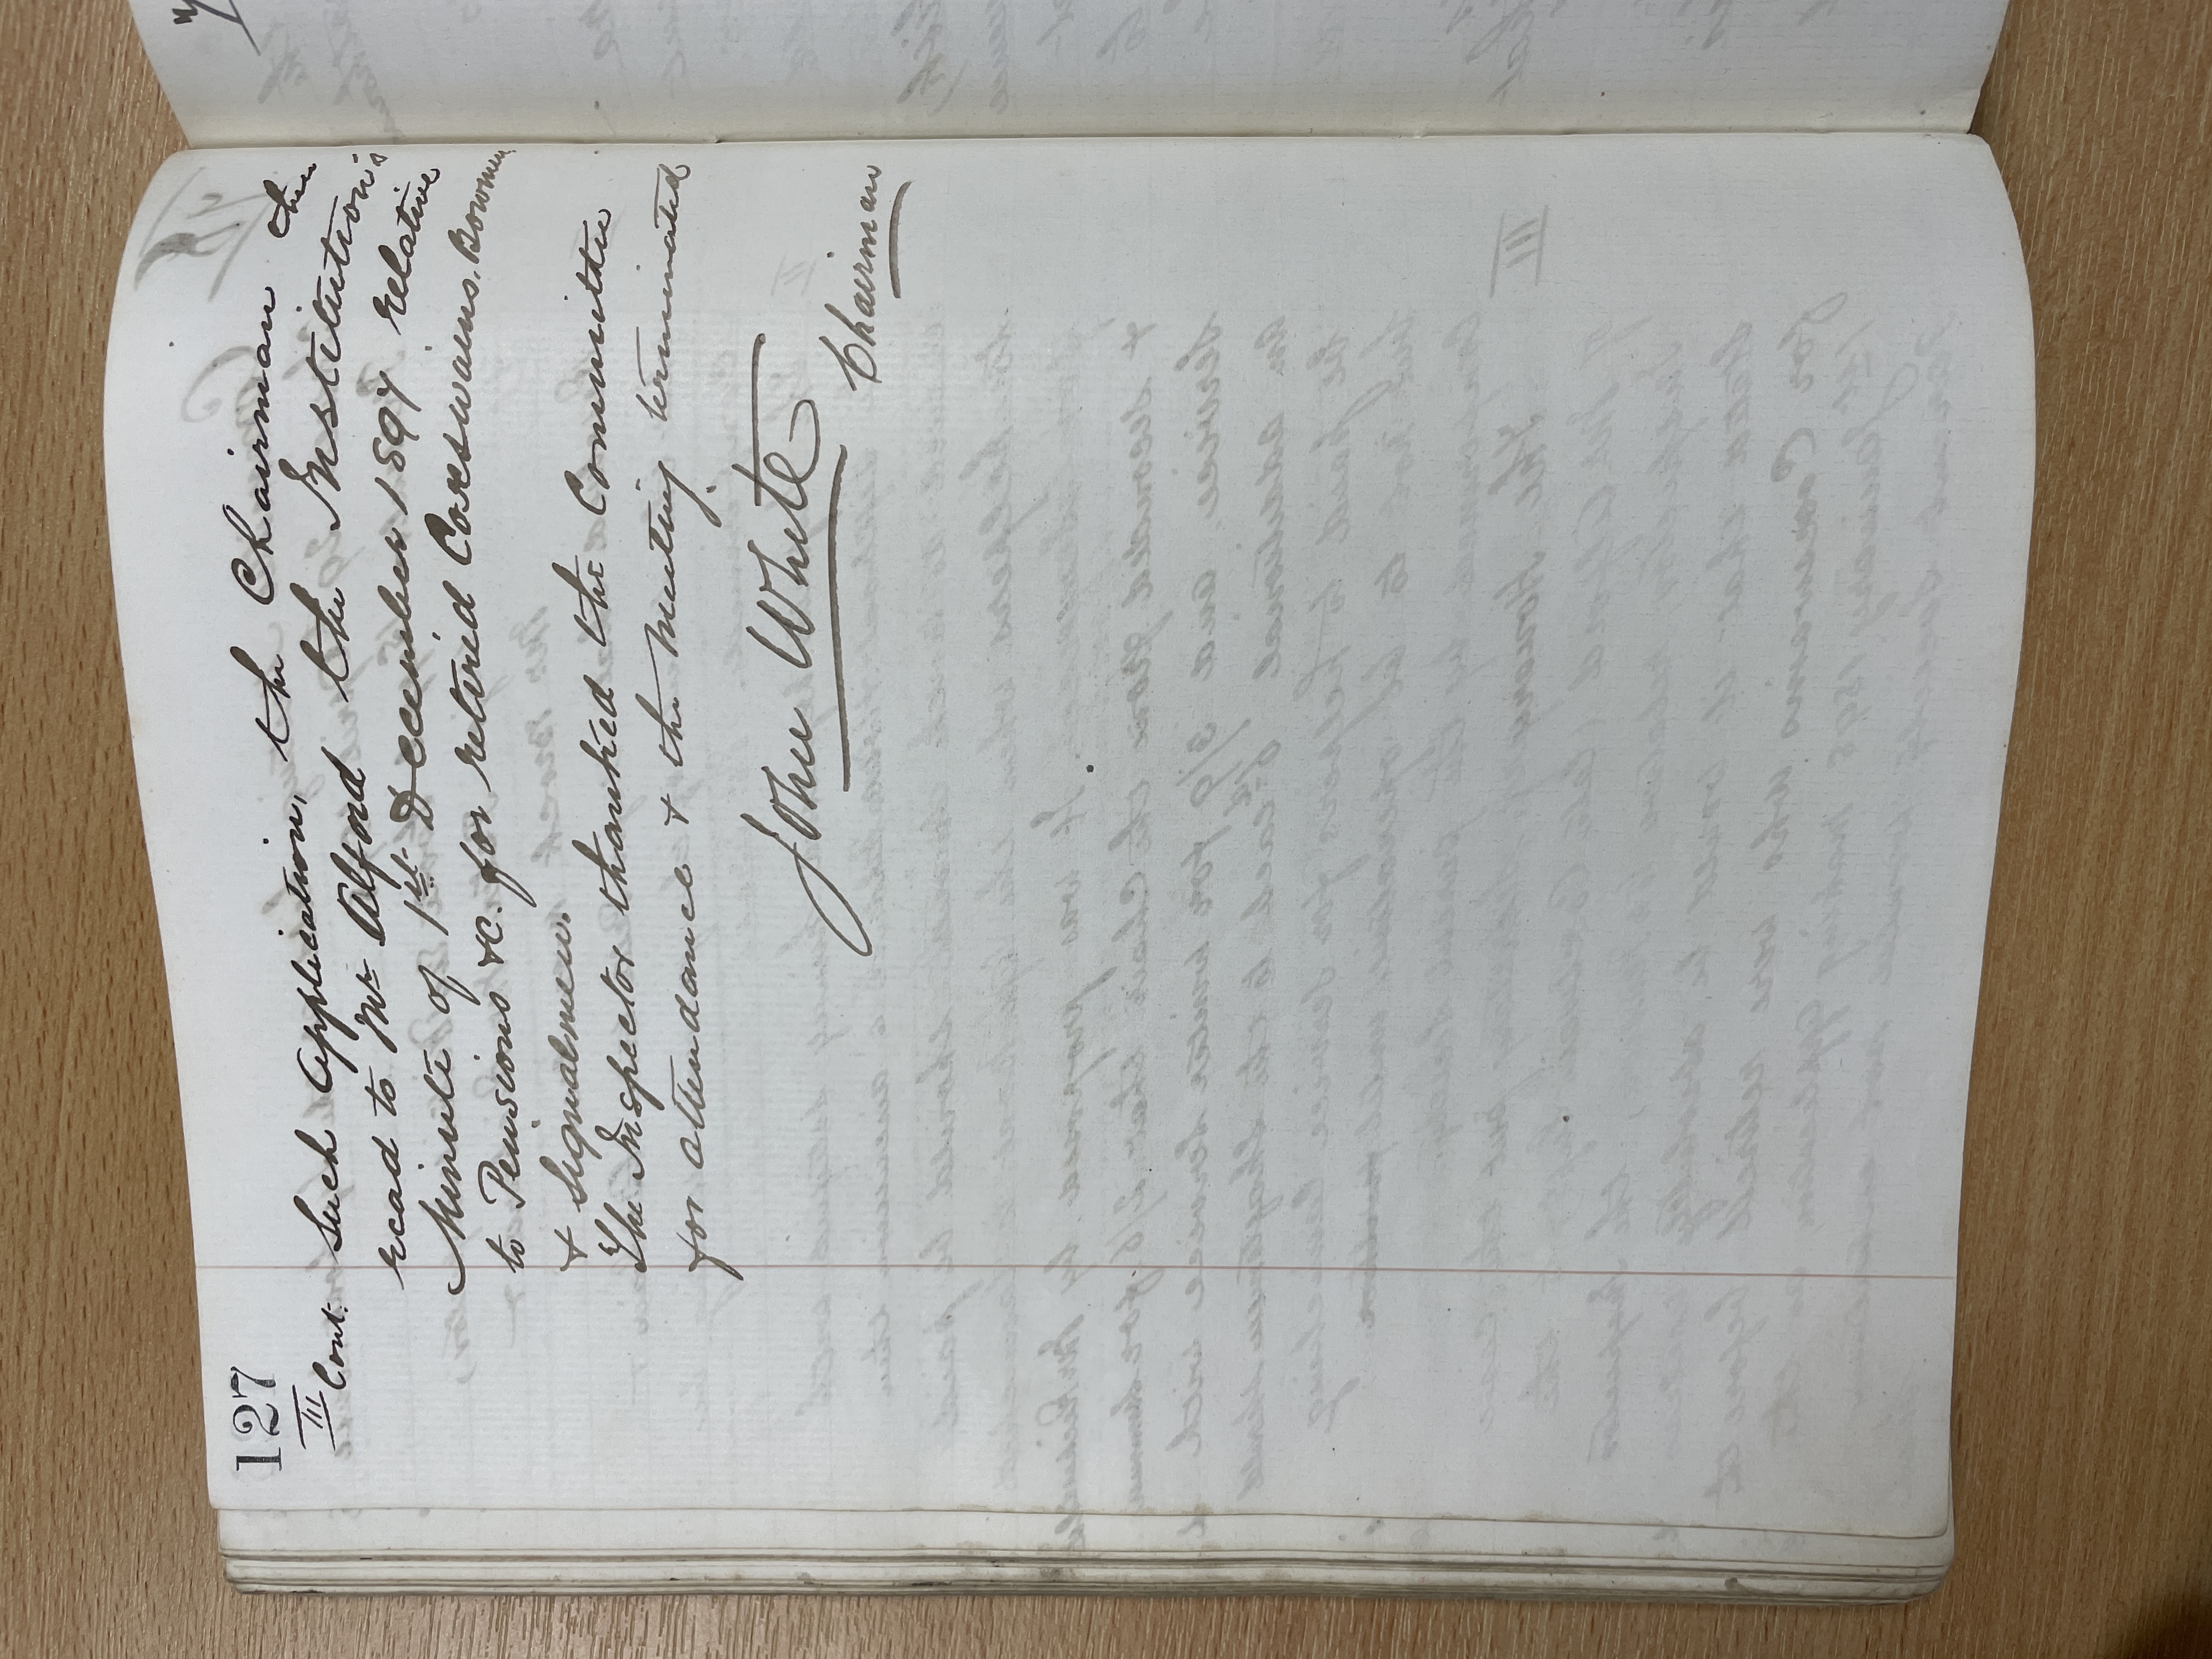 127
III Cont. Such Application, the Chairman then
read to Mr Alford the Institution's
Minute of 1st December 1897 relative
to Pensions &c. for retired Coxswains, Bowmen
& Signalmen.
The Inspector thanked the Committee
for attendance & the meeting terminated
John White
Chairman